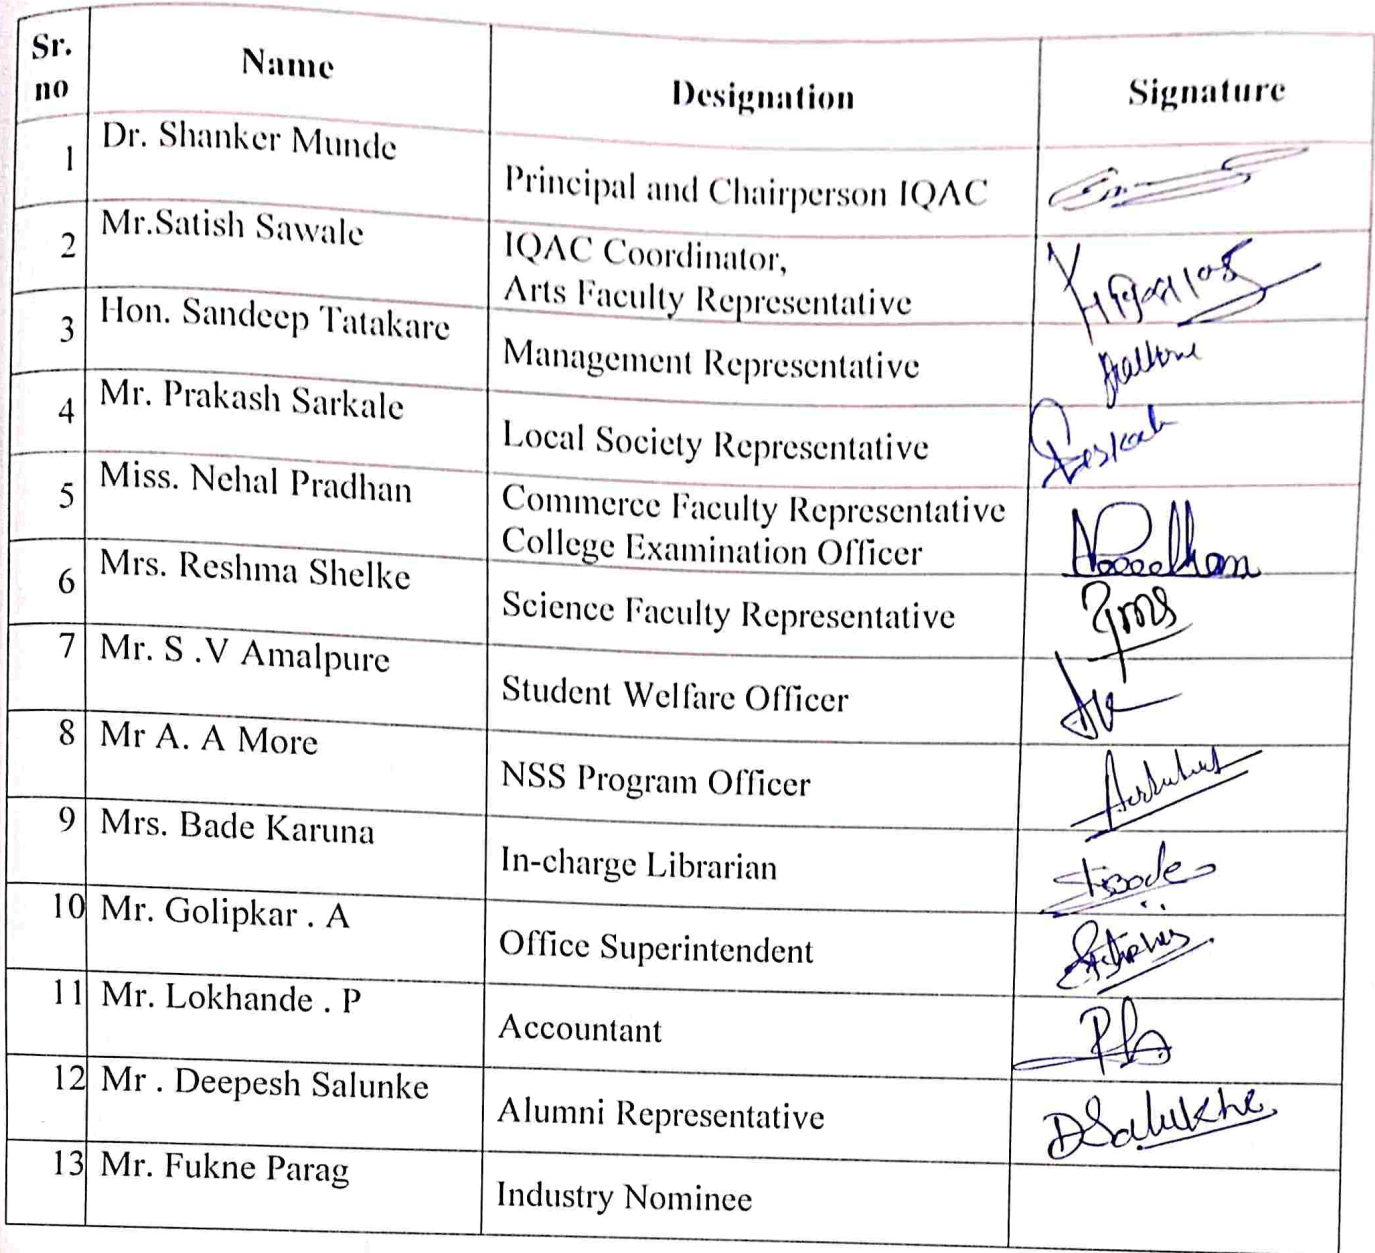 Sr. no Name Designation Signature
1 Dr. Shanker Munde Principal and Chairperson IQAC
2 Mr.Satish Sawale IQAC Coordinator,
Arts Faculty Representative
3 Hon. Sandeep Tatakare Management Representative
4 Mr. Prakash Sarkale Local Society Representative
5 Miss. Nehal Pradhan Commerce Faculty Representative
College Examination Officer
6 Mrs. Reshma Shelke Science Faculty Representative
7 Mr. S .V Amalpure Student Welfare Officer
8 Mr A. A More NSS Program Officer
9 Mrs. Bade Karuna In-charge Librarian
10 Mr. Golipkar . A Office Superintendent
11 Mr. Lokhande . P Accountant
12 Mr . Deepesh Salunke Alumni Representative DSalukhe
13 Mr. Fukne Parag Industry Nominee